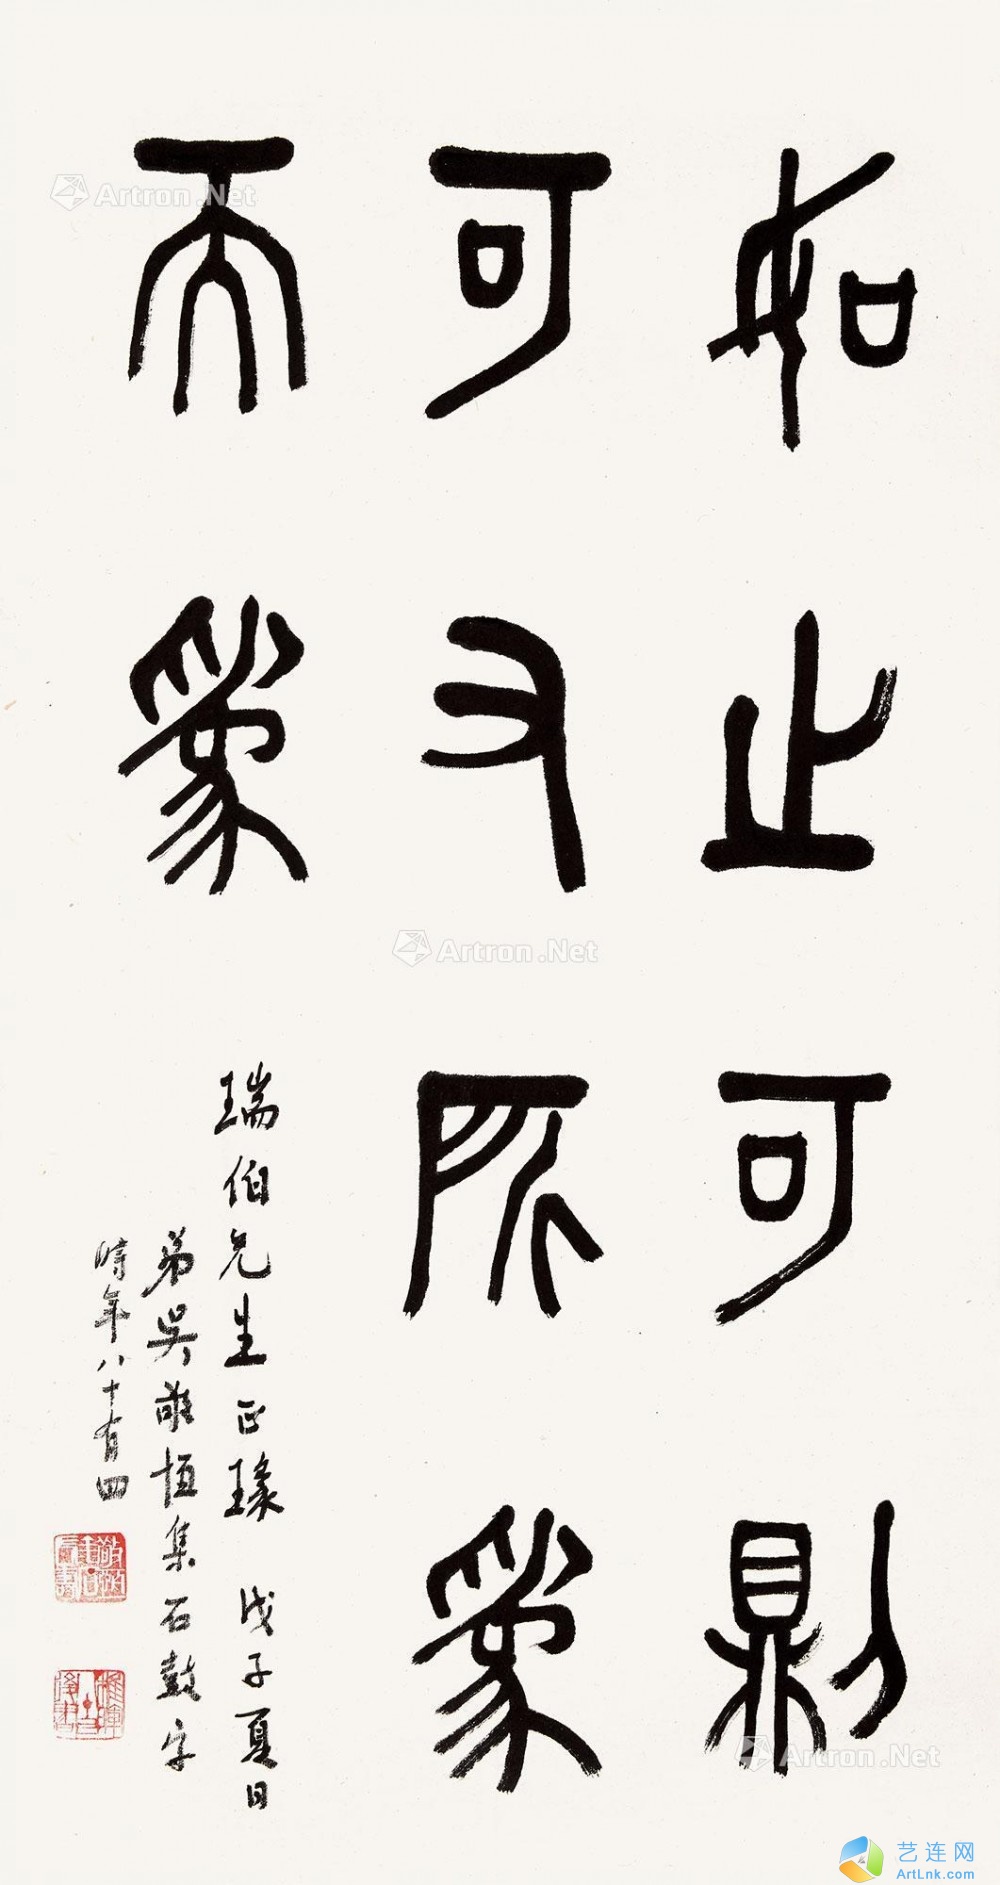 如止可則
可又所為
而為
瑞伯先生正瑑 戊子夏日
弟吳敬恆集石鼓字
時年八十有四
Artron.Net
Artron.Net
Artron.Net
艺连网
ArtLnk.com